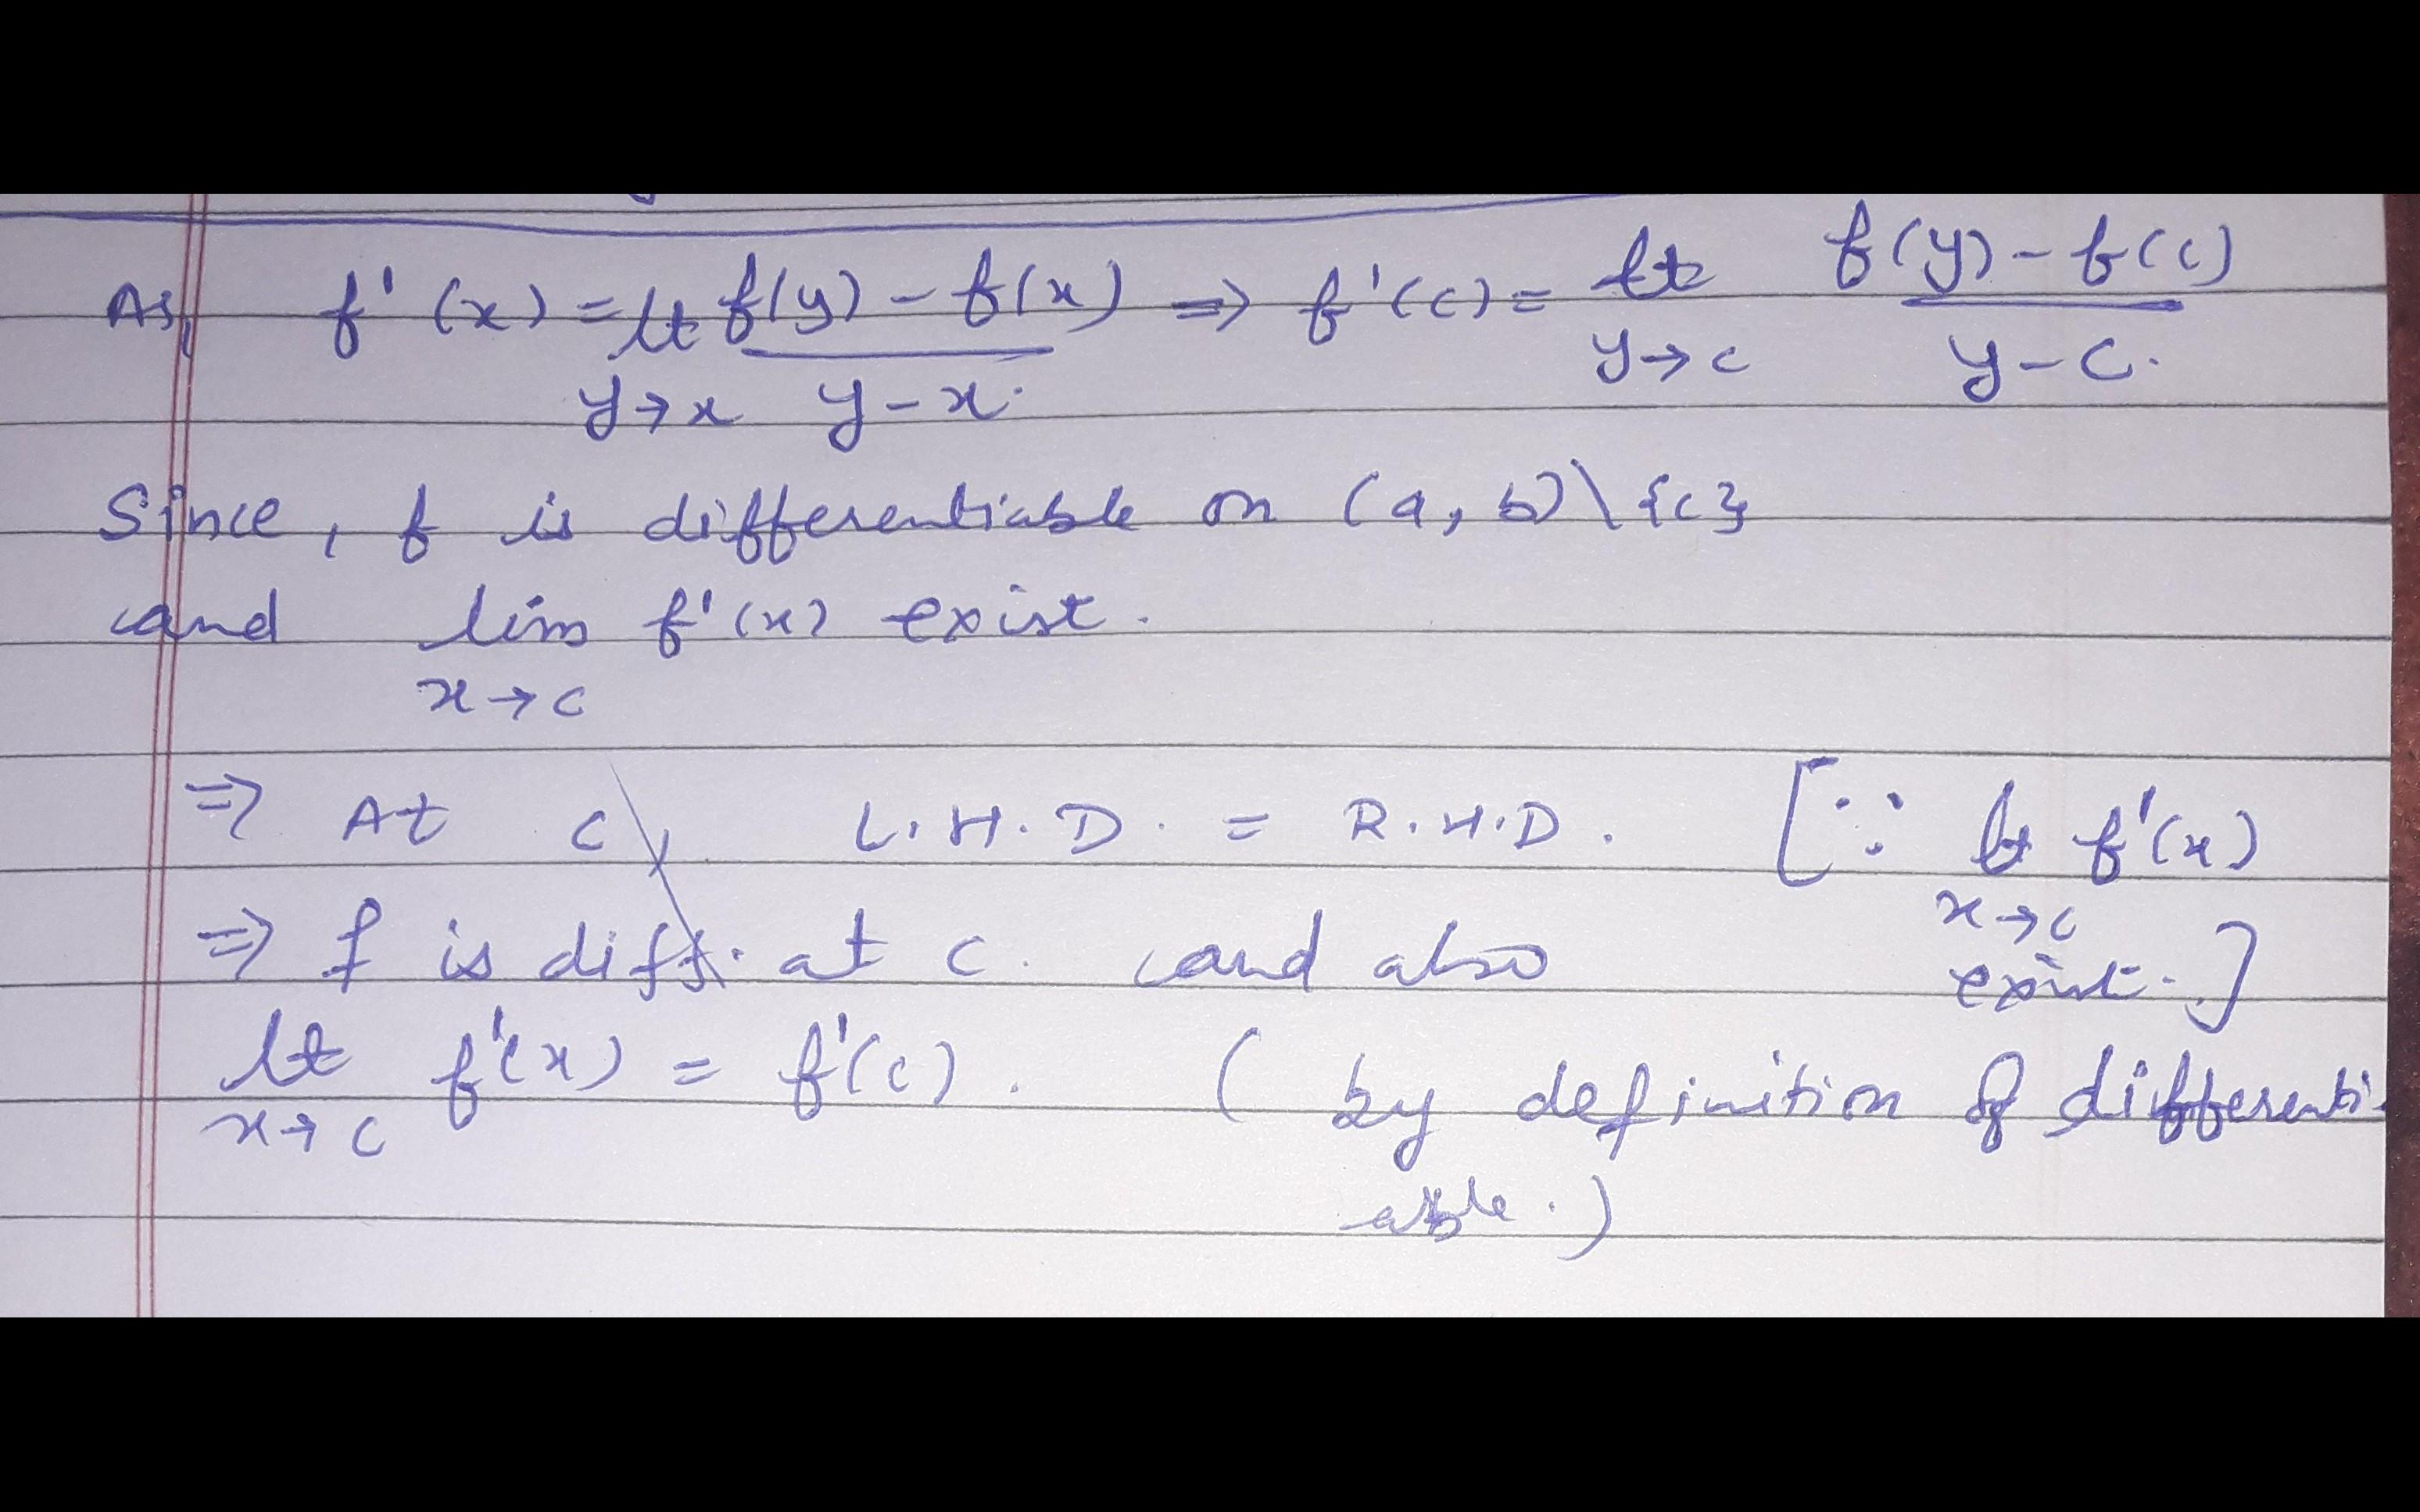 As, f'(x) = lt y→x f(y) - f(x) / y - x. => f'(c) = lt y→c f(y) - f(c) / y - c.
Since, f is differentiable on (a, b) \ {c}
and lim x→c f'(x) exist.
=> At c, L.H.D. = R.H.D. [∵ lt f'(x)
x→c
=> f is diff. at c. and also exist.]
lt x→c f'(x) = f'(c). (by definition of differenti-
able.)